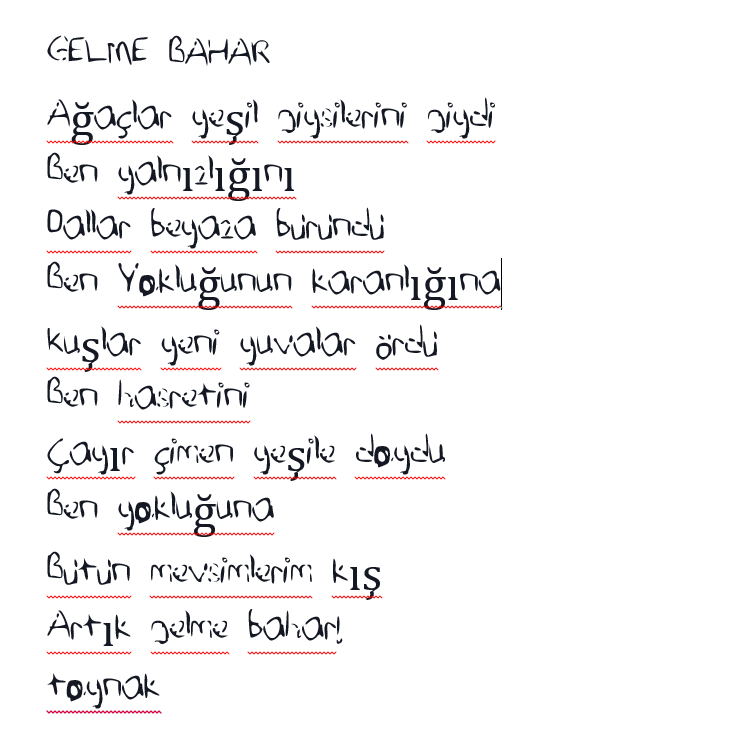 GELME BAHAR
Ağaçlar yeşil giysilerini giydi
Ben yalnızlığını
Dallar beyaza büründü
Ben Yokluğunun karanlığına
kuşlar yeni yuvalar ördü
Ben hasretini
Çayır çimen yeşile doydu
Ben yokluğuna
Bütün mevsimlerim kış
Artık gelme bahar!
toynak